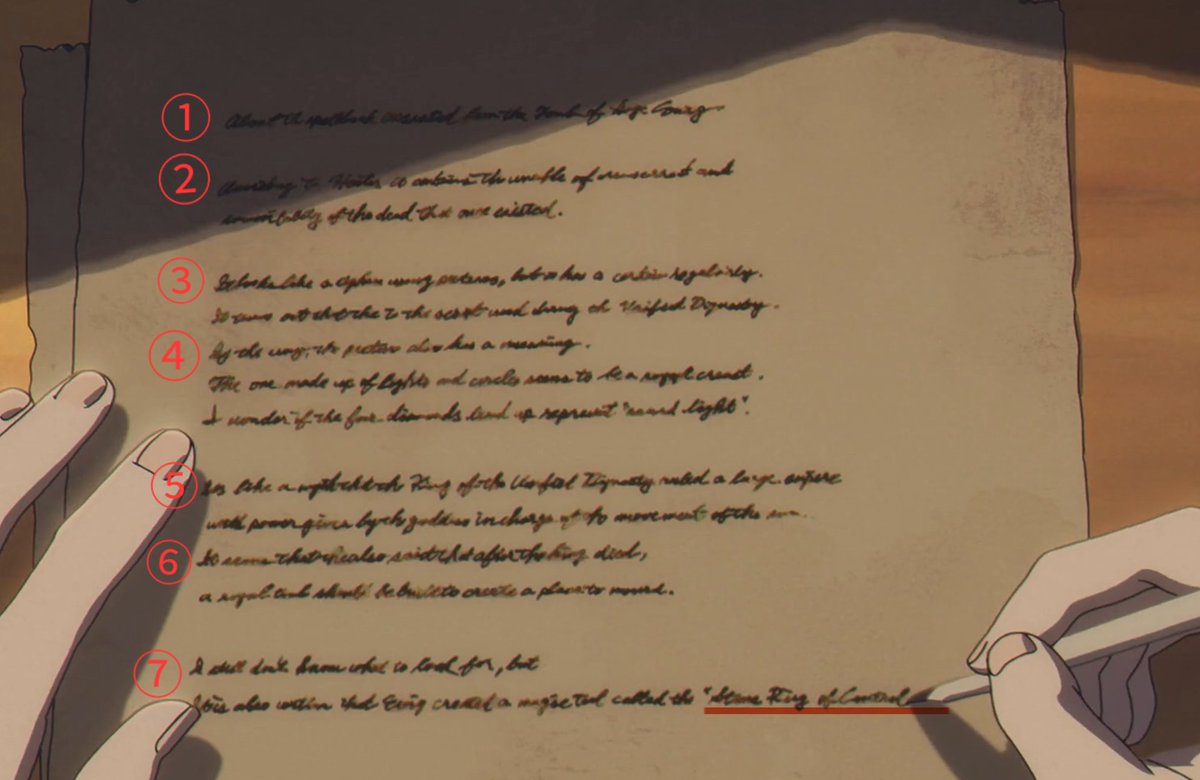 ① About the spellbook excavated from the Tomb of
② According to it contains the of and
of the dead that once existed.
③ It looks like a cipher using patterns, but it has a certain regularity.
It turns out that the is the script used during the Unified Dynasty.
④ By the way, the pattern also has a meaning.
The one made up of lights and circles seems to be a royal crest.
I wonder if the four diamonds lined up represent "sacred light".
⑤ like a myth that the King of the Unified Dynasty ruled a large empire
with power given by the goddess in charge of the movement of the sun
⑥ It seems that also said that after the king died,
a royal tomb should be built to create a place to mourn.
⑦ I still don't know what to look for, but
It is also written that created a magic tool called the "Stone Ring of Control